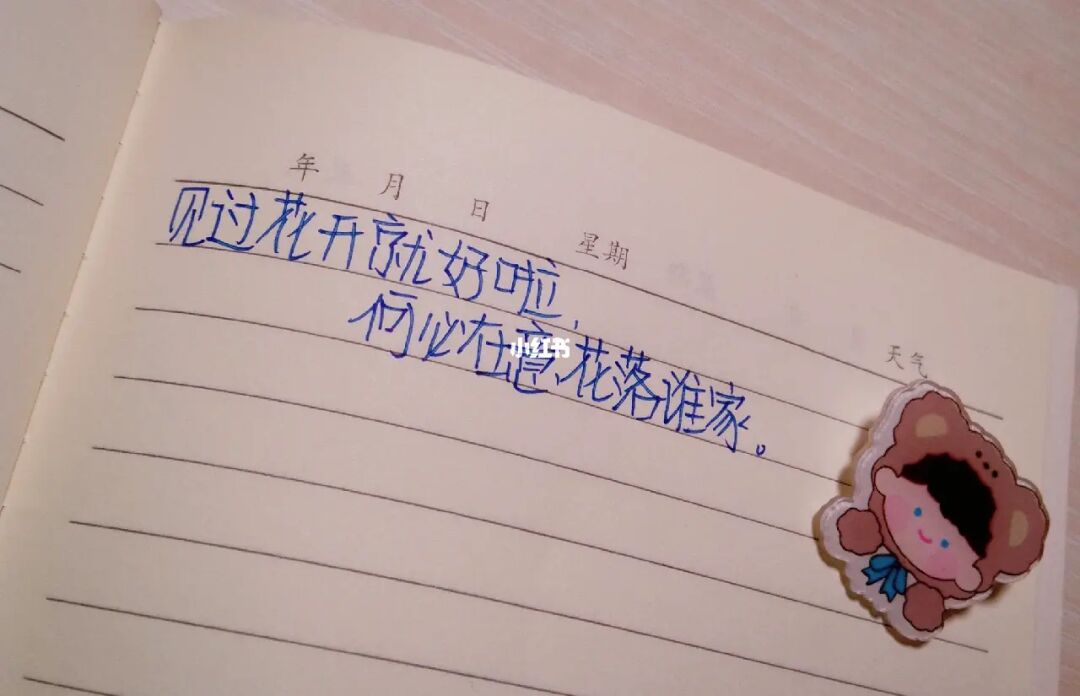 年 月 日 星期 天气
见过花开就好啦,
何必在意,花落谁家。
小红书